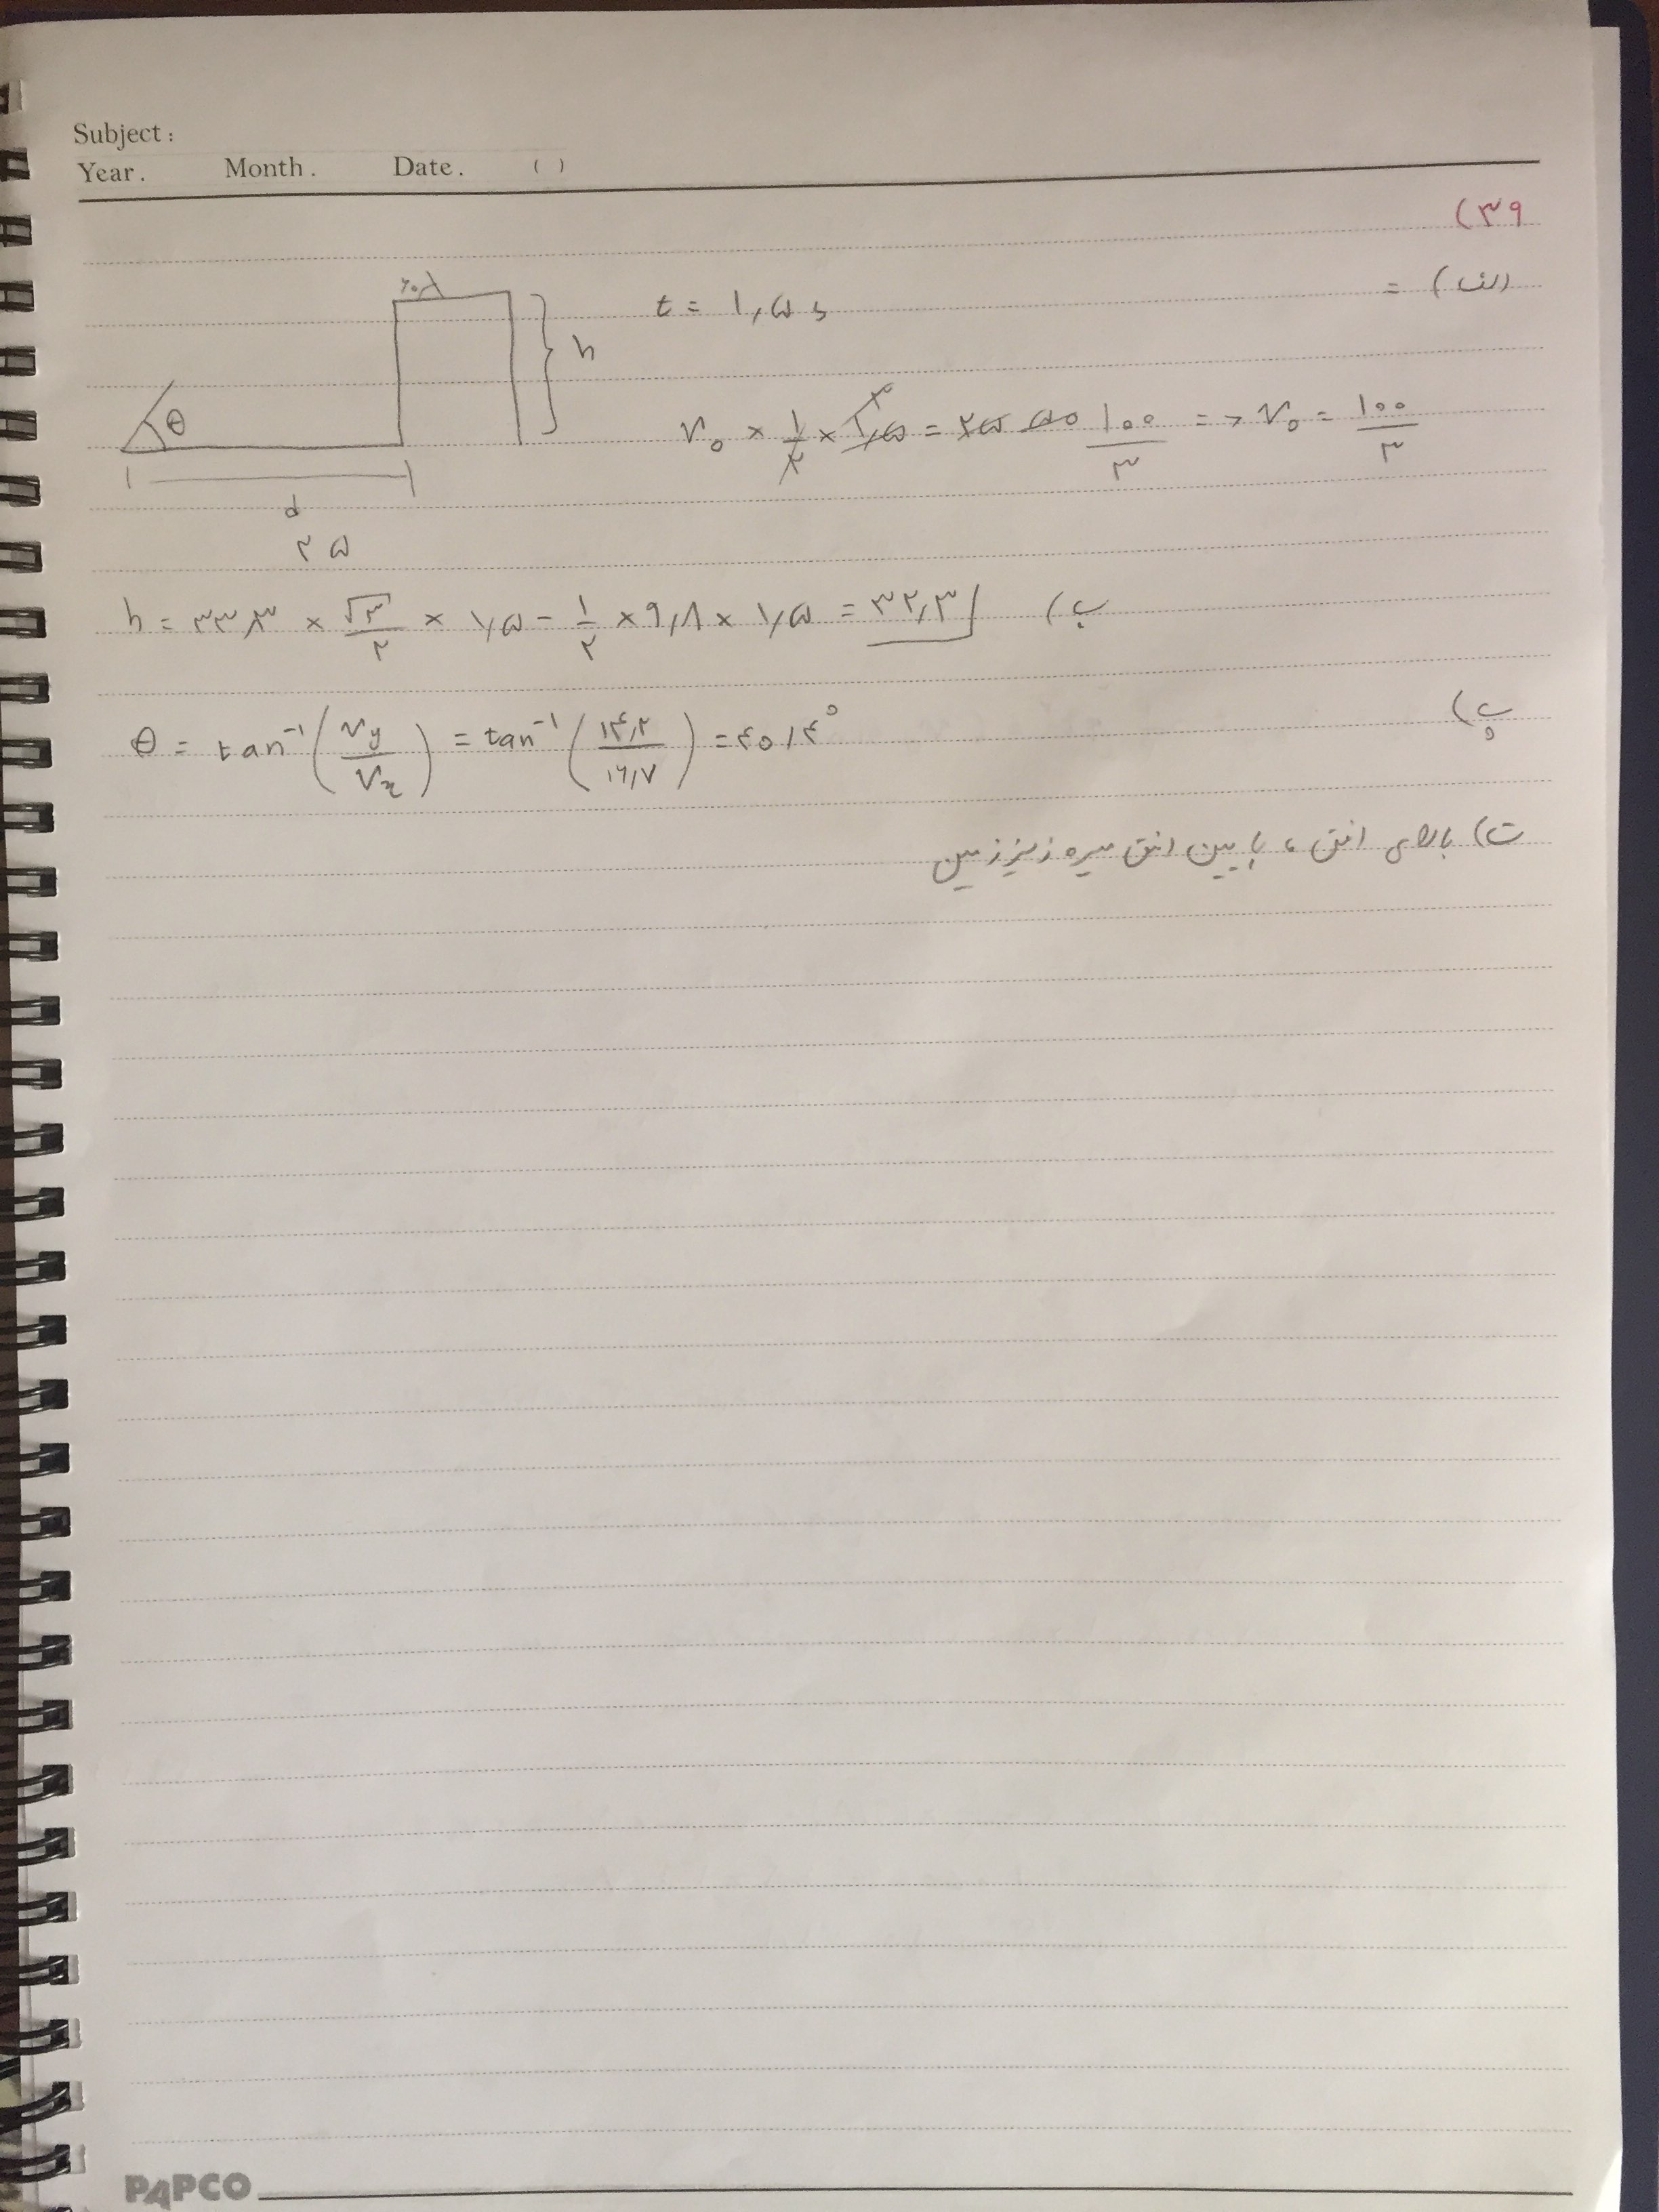 Subject:
Year. Month. Date. ( )
۳۹)
الف) =
t = ۱٫۵ s
h
θ
v₀ × ۱/۲ × ۱٫۵ = ۱۰۰/۳ => v₀ = ۱۰۰/۳
d
۲۵
ب) h = ۳۳٫۳ × √۳/۲ × ۱٫۵ - ۱/۲ × ۹٫۸ × ۱٫۵ = ۳۲٫۳
پ) θ = tan⁻¹(vy/vx) = tan⁻¹(۱۴٫۲/۱۶٫۷) = ۴۰٫۴°
ت) بالای افق، پایین افق میره زیرزمین
PAPCO